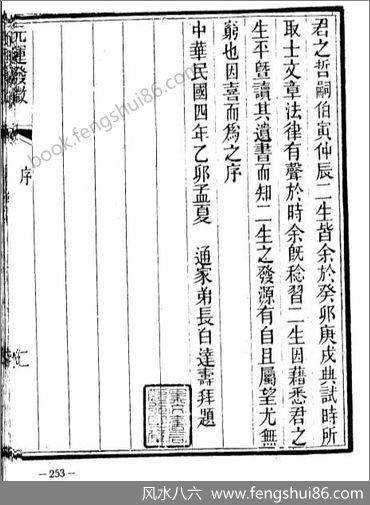 君之哲嗣伯寅仲辰二生皆余於癸卯庚戌典試時所
取士文章法律有聲於時余旣稔習二生因藉悉君之
生平曁讀其遺書而知二生之發源有自且屬望尤無
窮也因喜而爲之序
中華民國四年乙卯孟夏 通家弟長白達壽拜題
元運發微
序
book.fengshui86.com
—253—
风水八六 www.fengshui86.com